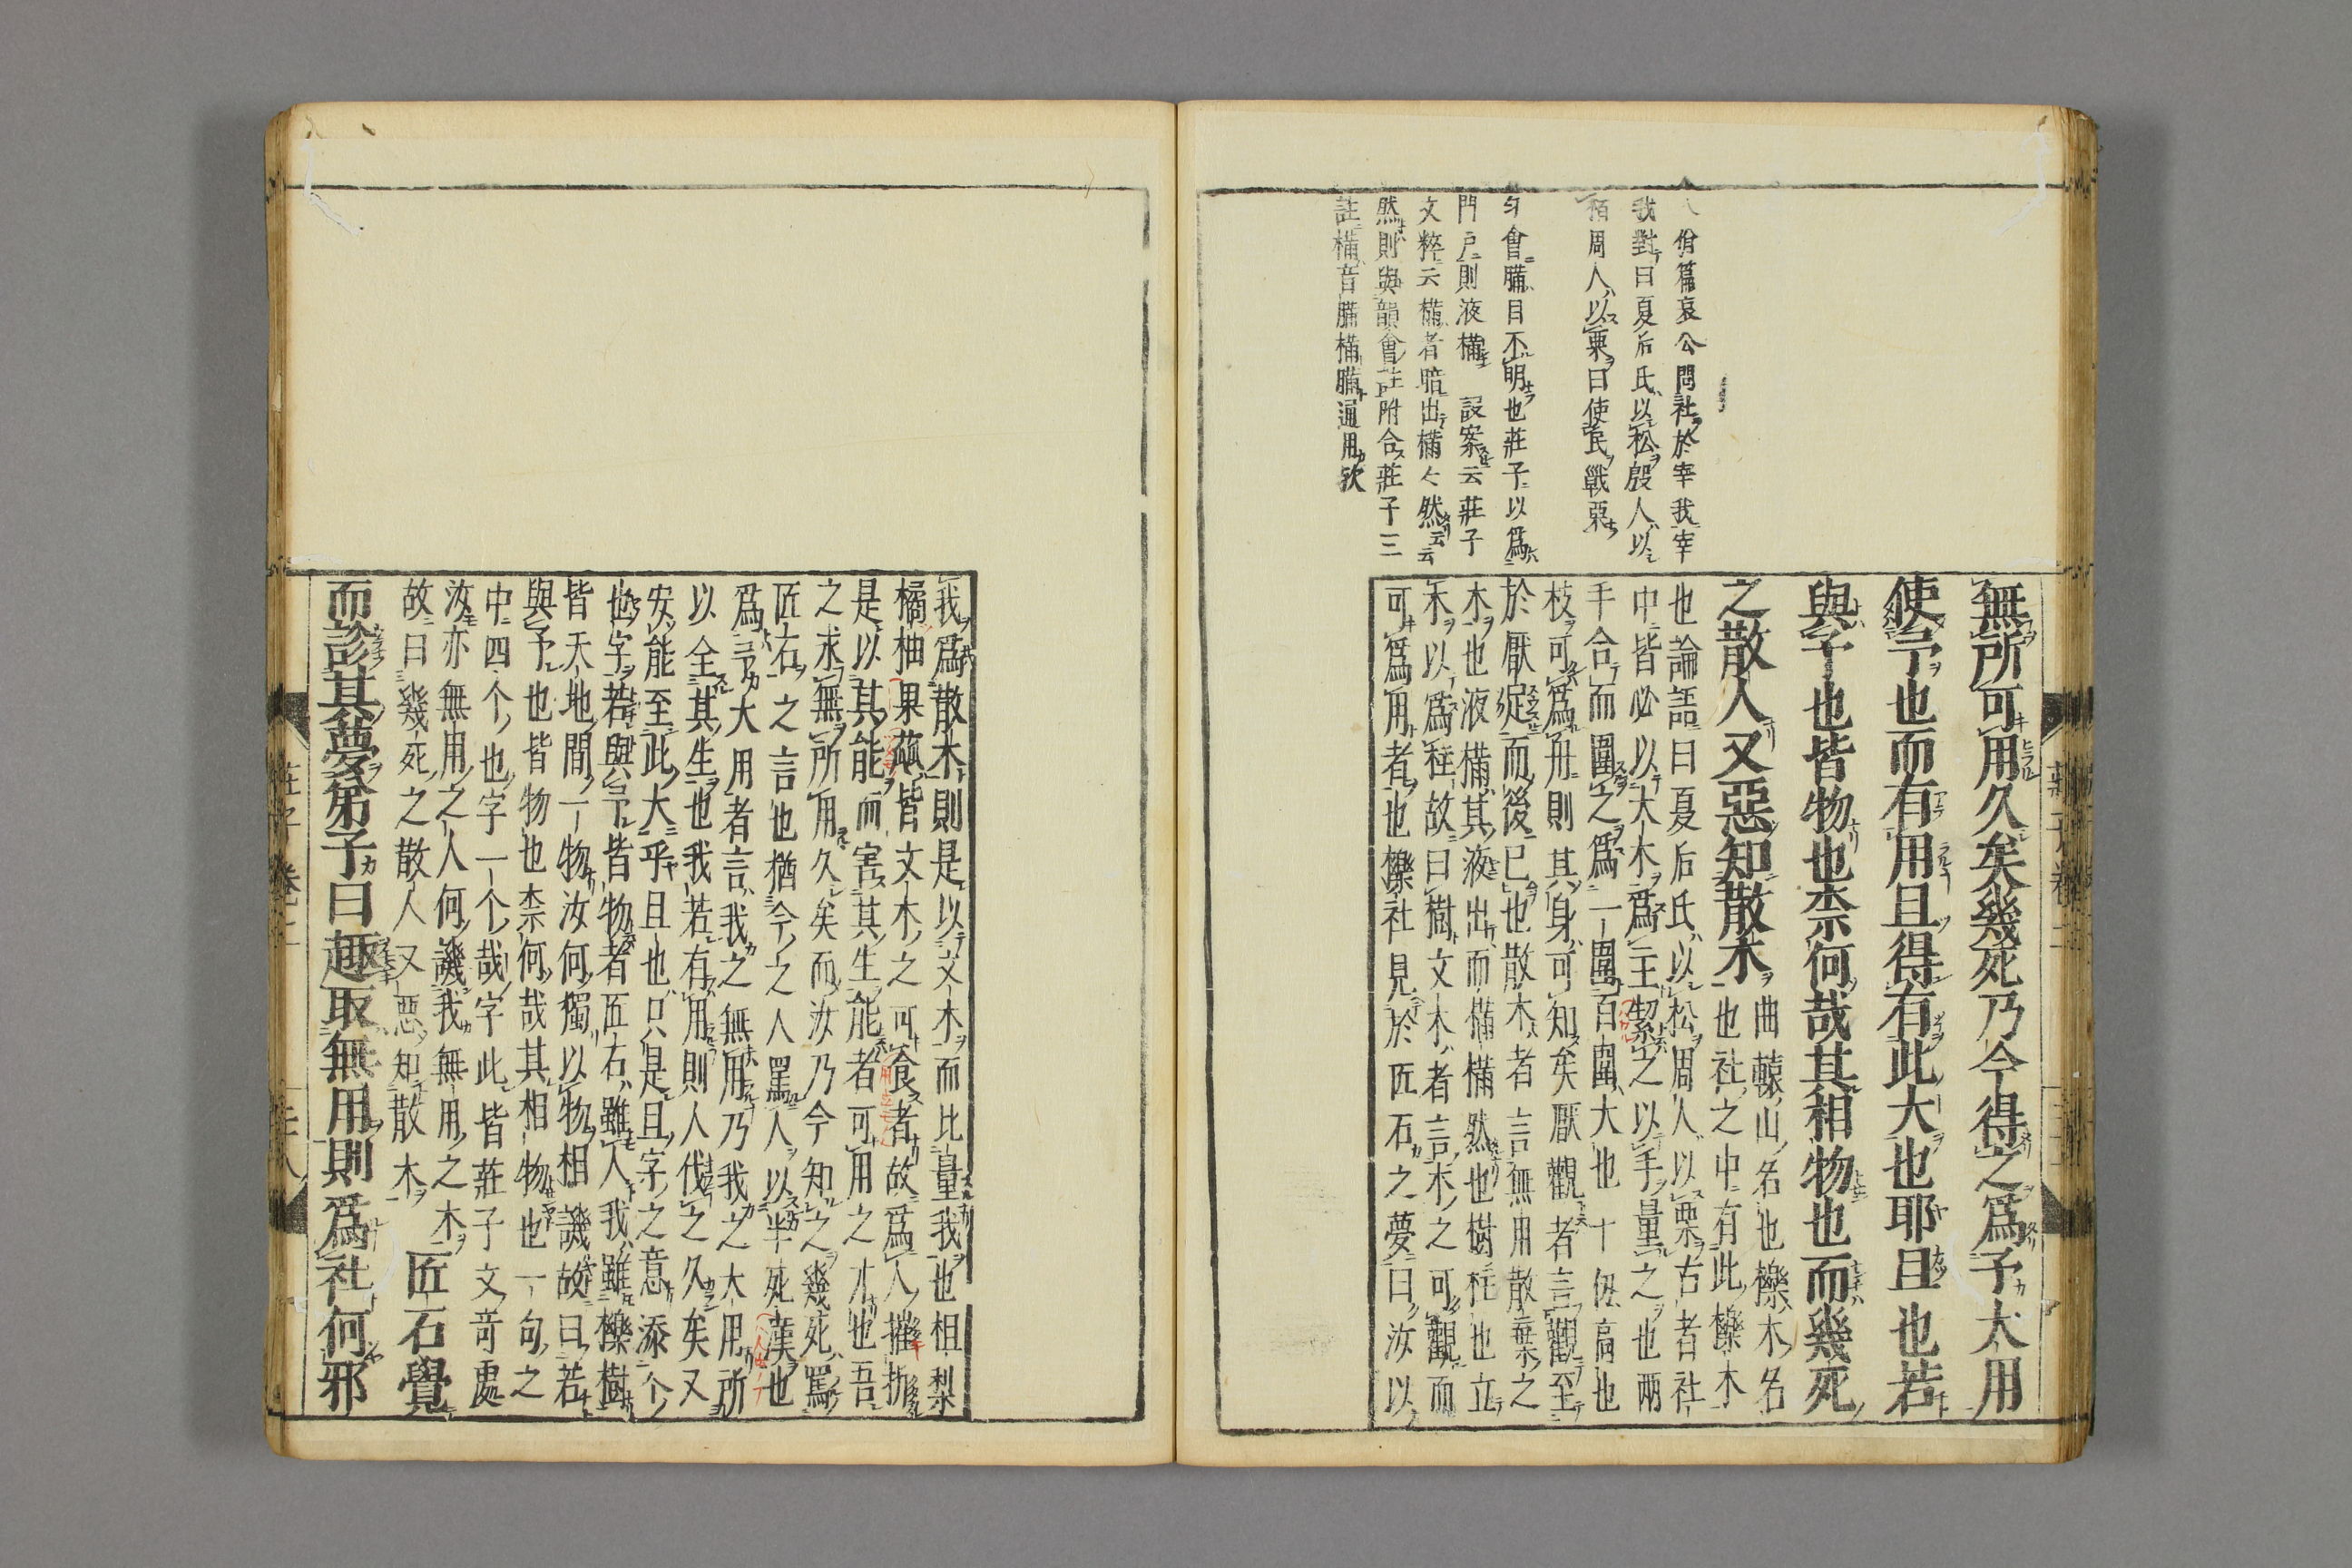 佾篇哀公問社於宰我宰
我對曰夏后氏以松殷人以
栢周人以栗曰使民戰栗
會㒼目不明也莊子以爲
門戸則液樠 設案云莊子
文粹云樠者暗出樠々然云云
然則與韻會註附合莊子三
註樠音㒼樠㒼通用欤
無所可用久矣幾死乃今得之爲予大用
使予也而有用且得有此大也耶且也若
與予也皆物也柰何哉其相物也而幾死
之散人又惡知散木
曲轅山名也櫟木名
也社之中有此櫟木
也論語曰夏后氏以松周人以栗古者社
中皆必以大木爲主絜之以手量之也兩
手合而圍之爲一圍百圍大也十仞高也
枝可爲舟則其身可知矣厭觀者言觀至
於厭足而後已也散木者言無用散棄之
木也液樠其液出而樠樠然也樹柱也立
木以爲柱故曰樹文木者言木之可觀而
可爲用者也櫟社見於匠石之夢曰汝以
我爲散木則是以文木而比量我也柤梨
橘柚果蓏皆文木之可食者故爲人摧折
是以其能而害其生能者可用之才也吾
之求無所用久矣而汝乃今知之幾死罵
匠石之言也猶今之人罵人以半死漢也
爲予大用者言我之無用乃我之大用所
以全其生也我若有用則人伐之久矣又
安能至此大乎且也只是且字之意添个
也字若與予皆物者匠石雖人我雖櫟樹
皆天地間一物汝何獨以物相譏故曰若
與予也皆物也柰何哉其相物也一句之
中四个也字一个哉字此皆莊子文奇處
汝亦無用之人何譏我無用之木
故曰幾死之散人又惡知散木
匠石覺
而診其夢弟子曰趣取無用則爲社何邪
莊子卷二